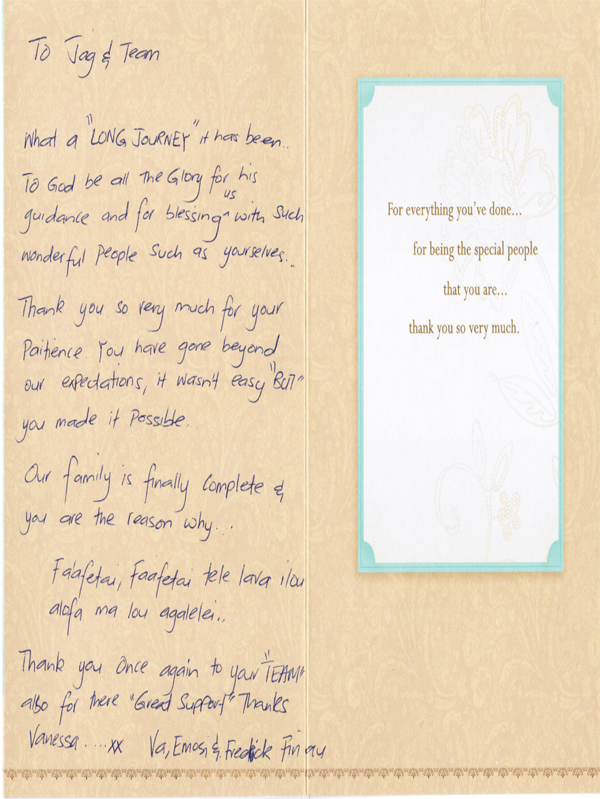 To Jag & Team
What a "LONG JOURNEY" it has been..
To God be all the Glory for his
guidance and for blessing us with such
wonderful people such as yourselves..
Thank you so very much for your
Paitience You have gone beyond
our expectations, it wasn't easy "BUT"
you made it possible.
Our family is finally complete &
you are the reason why...
Fa'afetai, Faafetai tele lava ilou
alofa ma lou agalelei..
Thank you once again to your "TEAM"
also for there "Great Support" Thanks
Vanessa....xx Va, Emosi & Fredrick Finau
For everything you've done...
for being the special people
that you are...
thank you so very much.